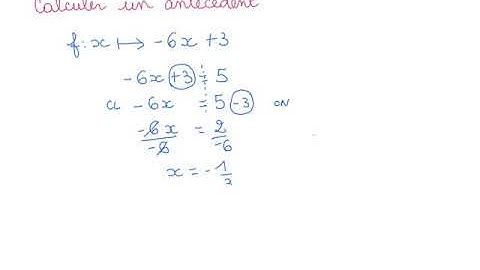 Calculer un antécédent
f: x ↦ -6x + 3
-6x + 3 = 5
a -6x = 5 - 3 on
-6x/-6 = 2/-6
x = -1/3